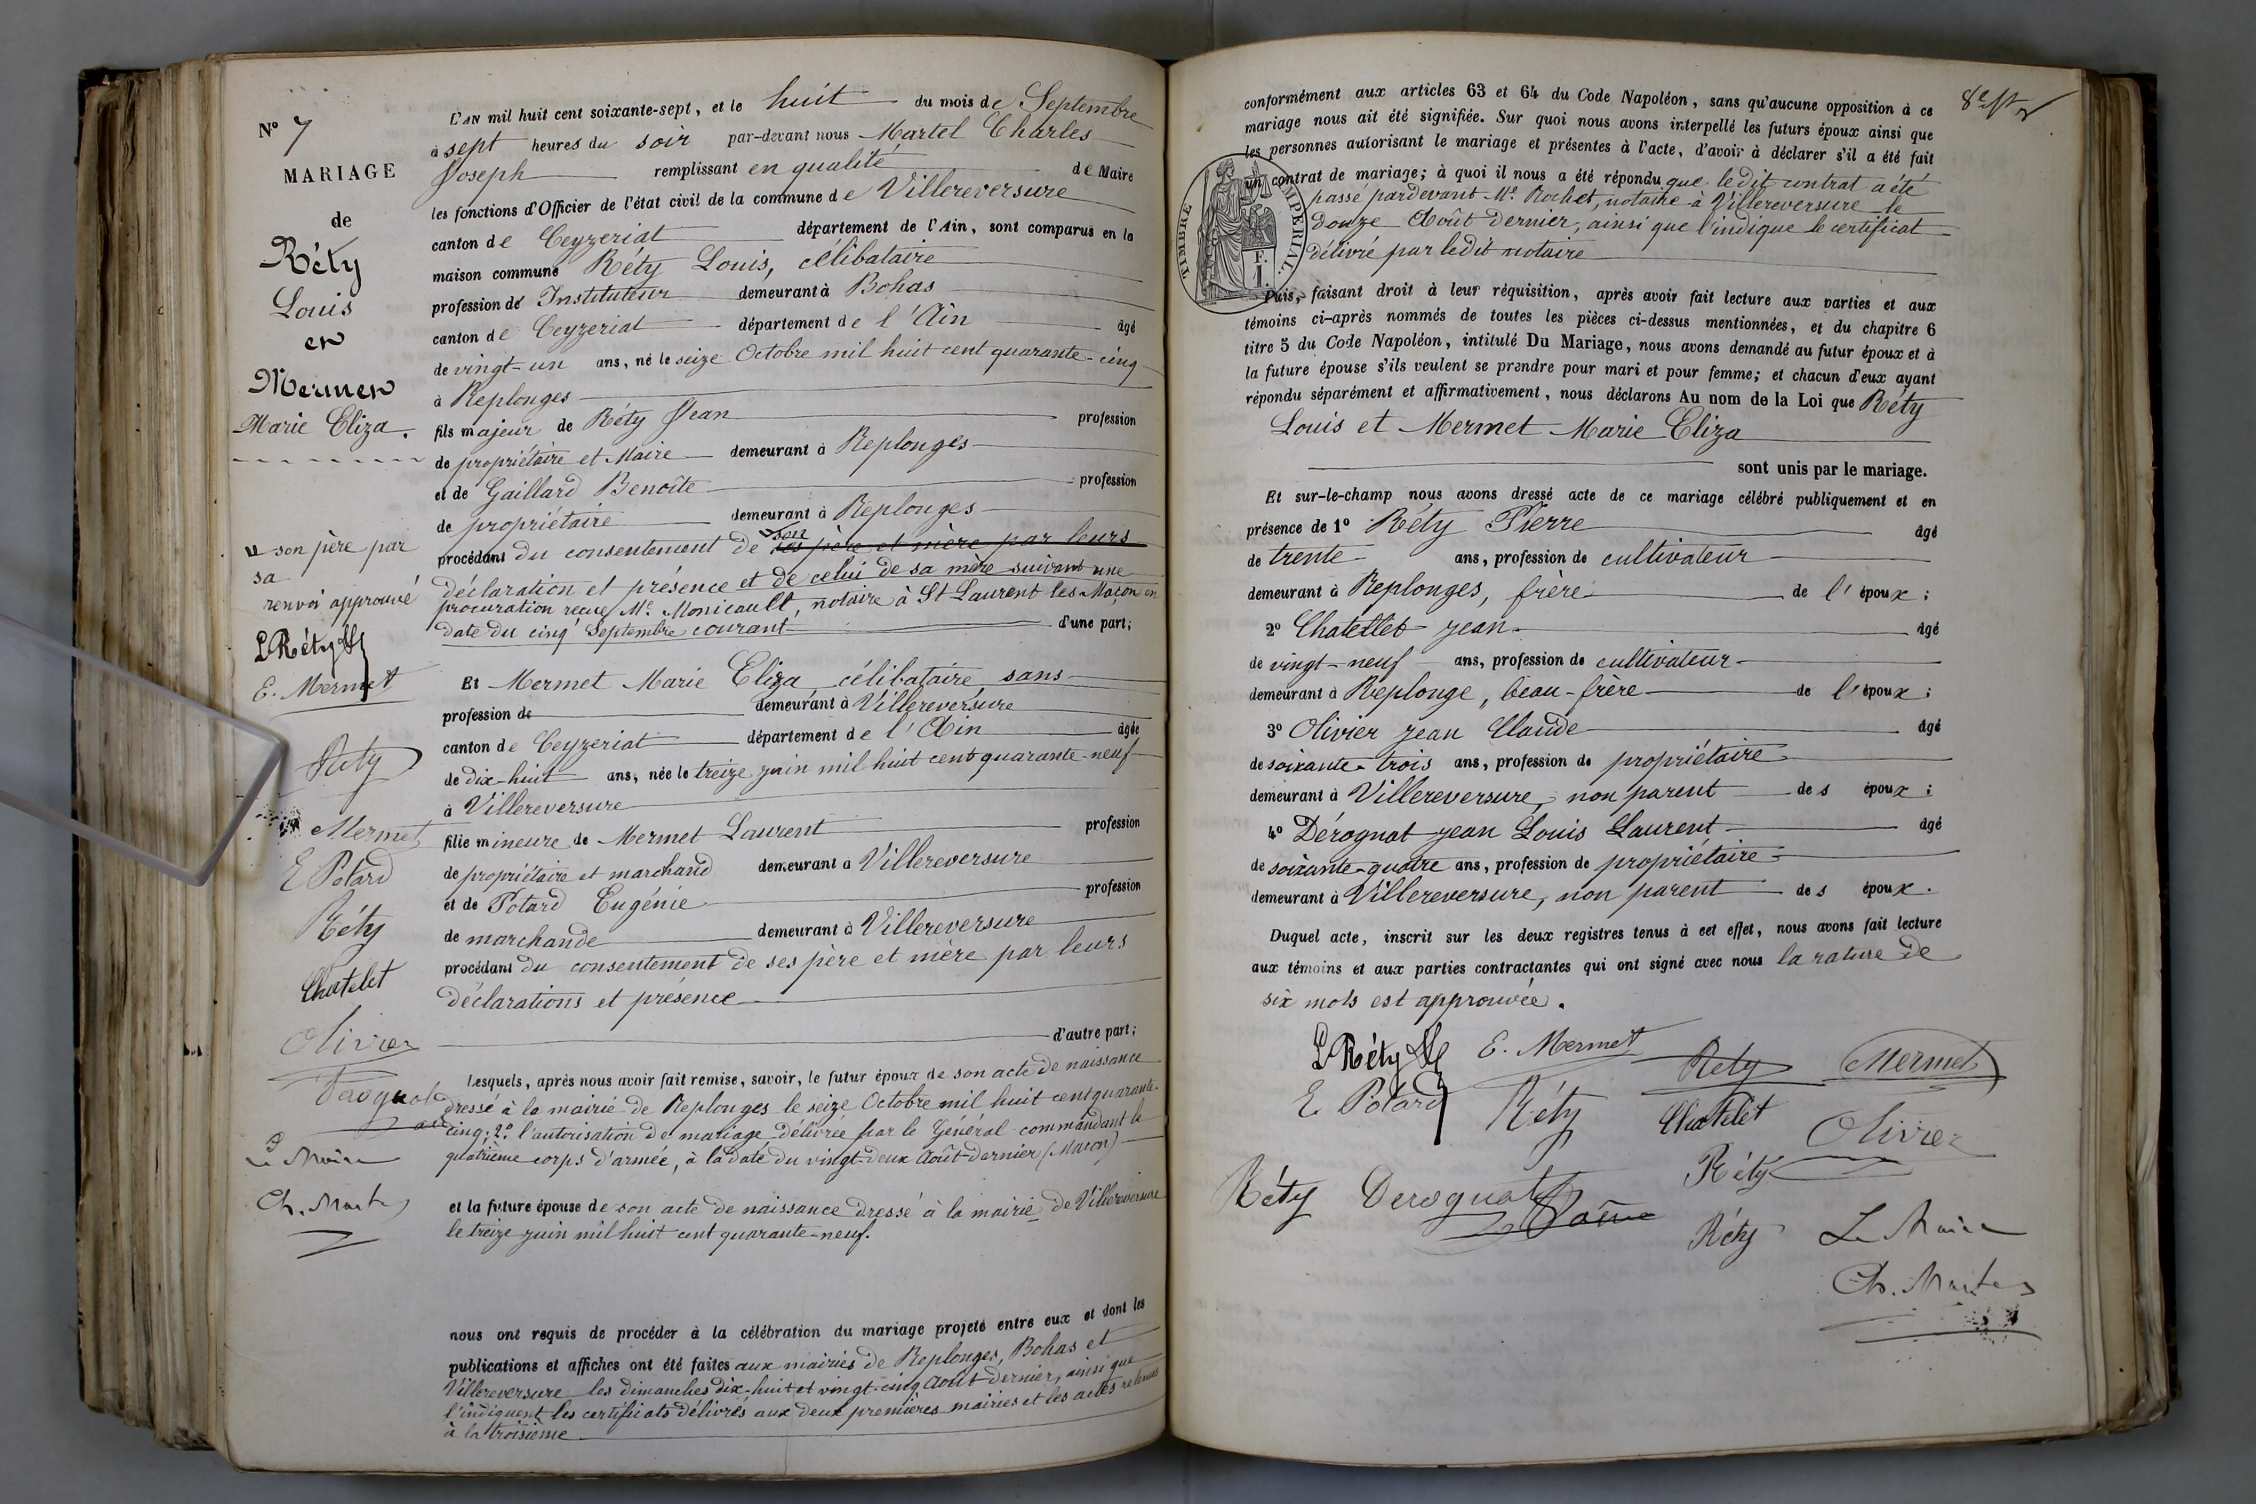 N° 7
MARIAGE
de
Réty
Louis
et
Mermet
Marie Eliza.
son père par
sa
renvoi approuvé
L Réty
E. Mermet
Réty
Mermet
E Potard
Réty
Chatelet
Olivier
Le Maire
Ch. Martel
L'AN mil huit cent soixante-sept, et le huit du mois de Septembre
à sept heures du soir par-devant nous Martel Charles
Joseph remplissant en qualité de Maire
les fonctions d'Officier de l'état civil de la commune de Villereversure
canton de Ceyzeriat département de l'Ain, sont comparus en la
maison commune Réty Louis, célibataire
profession de Instituteur demeurant à Bohas
canton de Ceyzeriat département de l'Ain âgé
de vingt-un ans, né le seize Octobre mil huit cent quarante-cinq
à Replonges
fils majeur de Réty Jean profession
de propriétaire et Maire demeurant à Replonges
et de Gaillard Benoîte profession
de propriétaire demeurant à Replonges
son
procédant du consentement de ses père et mère par leurs
déclaration et présence et de celui de sa mère suivant une
procuration reçue Me. Monicault, notaire à St Laurent les Macon en
date du cinq Septembre courant d'une part;
Et Mermet Marie Eliza célibataire sans
profession de demeurant à Villereversure
canton de Ceyzeriat département de l'Ain âgée
de dix-huit ans, née le treize juin mil huit cent quarante-neuf
à Villereversure
fille mineure de Mermet Laurent profession
de propriétaire et marchand demeurant à Villereversure
et de Potard Eugénie profession
de marchande demeurant à Villereversure
procédant du consentement de ses père et mère par leurs
déclarations et présence
d'autre part;
Lesquels, après nous avoir fait remise, savoir, le futur époux de son acte de naissance
dressé à la mairie de Replonges le seize Octobre mil huit cent quarante-
cinq; 2° l'autorisation de mariage délivrée par le Général commandant le
quatrième corps d'armée, à la date du vingt-deux Août dernier (Macon)
et la future épouse de son acte de naissance dressé à la mairie de Villereversure
le treize juin mil huit cent quarante-neuf.
nous ont requis de procéder à la célébration du mariage projeté entre eux et dont les
publications et affiches ont été faites aux mairies de Replonges, Bohas et
Villereversure les dimanches dix-huit et vingt-cinq Août dernier, ainsi que
l'indiquent les certificats délivrés aux deux premières mairies et les actes retenus
à la troisième
8e
conformément aux articles 63 et 64 du Code Napoléon, sans qu'aucune opposition à ce
mariage nous ait été signifiée. Sur quoi nous avons interpellé les futurs époux ainsi que
les personnes autorisant le mariage et présentes à l'acte, d'avoir à déclarer s'il a été fait
un contrat de mariage; à quoi il nous a été répondu que ledit contrat a été
passé pardevant Me. Rochet, notaire à Villereversure le
douze Août dernier, ainsi que l'indique le certificat
délivré par ledit notaire
TIMBRE IMPERIAL.
F.
1.
Puis, faisant droit à leur réquisition, après avoir fait lecture aux parties et aux
témoins ci-après nommés de toutes les pièces ci-dessus mentionnées, et du chapitre 6
titre 5 du Code Napoléon, intitulé Du Mariage, nous avons demandé au futur époux et à
la future épouse s'ils veulent se prendre pour mari et pour femme; et chacun d'eux ayant
répondu séparément et affirmativement, nous déclarons Au nom de la Loi que Réty
Louis et Mermet Marie Eliza
sont unis par le mariage.
Et sur-le-champ nous avons dressé acte de ce mariage célébré publiquement et en
présence de 1° Réty Pierre âgé
de trente ans, profession de cultivateur
demeurant à Replonges, frère de l'époux;
2° Chatellet jean âgé
de vingt-neuf ans, profession de cultivateur
demeurant à Replonge, beau-frère de l'époux;
3° Olivier jean Claude âgé
de soixante-trois ans, profession de propriétaire
demeurant à Villereversure, non parent des époux;
4° Dérognat jean Louis Laurent âgé
de soixante-quatre ans, profession de propriétaire
demeurant à Villereversure, non parent des époux.
Duquel acte, inscrit sur les deux registres tenus à cet effet, nous avons fait lecture
aux témoins et aux parties contractantes qui ont signé avec nous la rature de
six mots est approuvée.
L Réty E. Mermet Réty Mermet
E. Potard Réty Chatelet Olivier
Réty Derognat Réty
Réty Le Maire
Ch. Martel